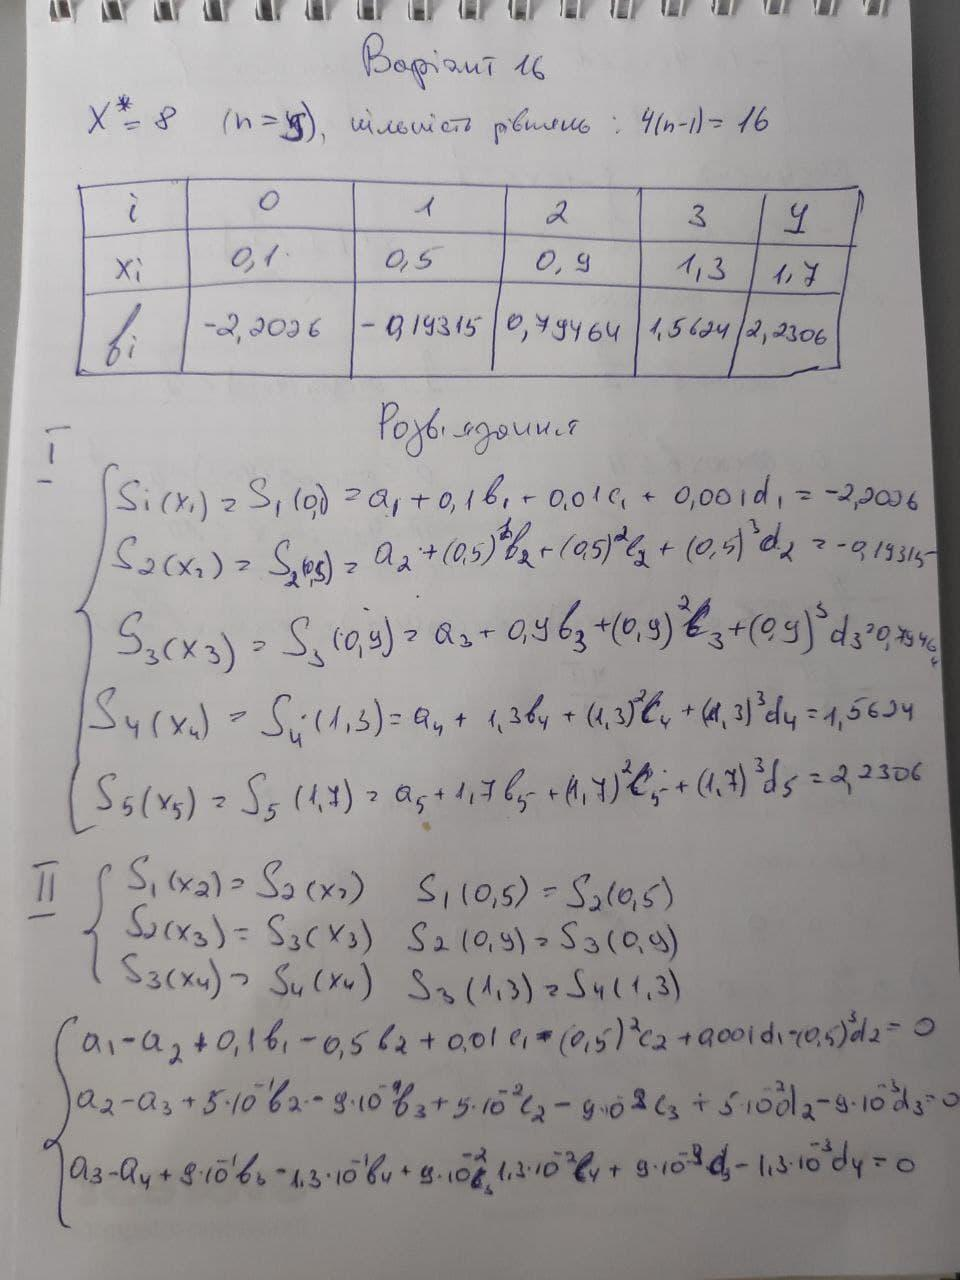 Варіант 16
X* = 8 (n = 5), кількість рівнянь : 4(n-1) = 16
i 0 1 2 3 4
xi 0,1 0,5 0,9 1,3 1,7
fi -2,2026 -0,19315 0,79464 1,5624 2,2306
Розв'язання
I
Si(x₁) = S₁(0,1) = a₁ + 0,1b₁ + 0,01c₁ + 0,001d₁ = -2,2026
S₂(x₂) = S₂(0,5) = a₂ + (0,5)b₂ + (0,5)²c₂ + (0,5)³d₂ = -0,19315
S₃(x₃) = S₃(0,9) = a₃ + 0,9b₃ + (0,9)²c₃ + (0,9)³d₃ = 0,79464
S₄(x₄) = S₄(1,3) = a₄ + 1,3b₄ + (1,3)²c₄ + (1,3)³d₄ = 1,5624
S₅(x₅) = S₅(1,7) = a₅ + 1,7b₅ + (1,7)²c₅ + (1,7)³d₅ = 2,2306
II
S₁(x₂) = S₂(x₂) S₁(0,5) = S₂(0,5)
S₂(x₃) = S₃(x₃) S₂(0,9) = S₃(0,9)
S₃(x₄) = S₄(x₄) S₃(1,3) = S₄(1,3)
a₁ - a₂ + 0,1b₁ - 0,5b₂ + 0,01c₁ - (0,5)²c₂ + 0,001d₁ - (0,5)³d₂ = 0
a₂ - a₃ + 5·10⁻¹b₂ - 9·10⁻¹b₃ + 5·10⁻²c₂ - 9·10⁻²c₃ + 5·10⁻³d₂ - 9·10⁻³d₃ = 0
a₃ - a₄ + 9·10⁻¹b₃ - 1,3·10⁻¹b₄ + 9·10⁻²c₃ 1,3·10⁻²c₄ + 9·10⁻³d₃ - 1,3·10⁻³d₄ = 0